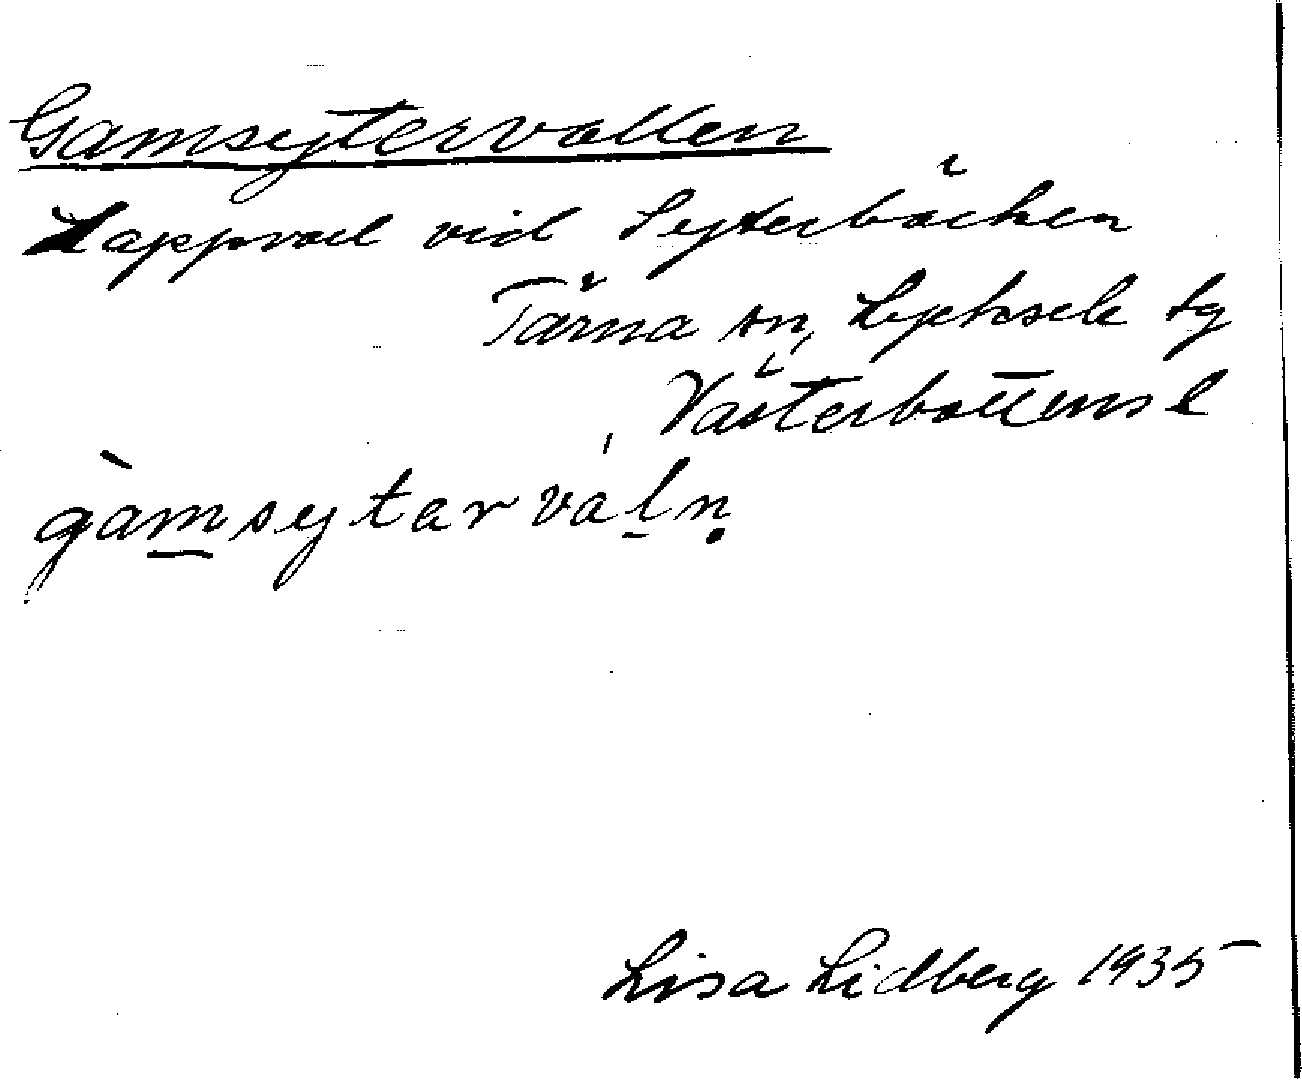 Gamsytervallen
Lappval vid Syterbäcken
Tärna sn, Lycksele tg
Västerbottens l
gàmsytarváln
Lisa Lidberg 1935